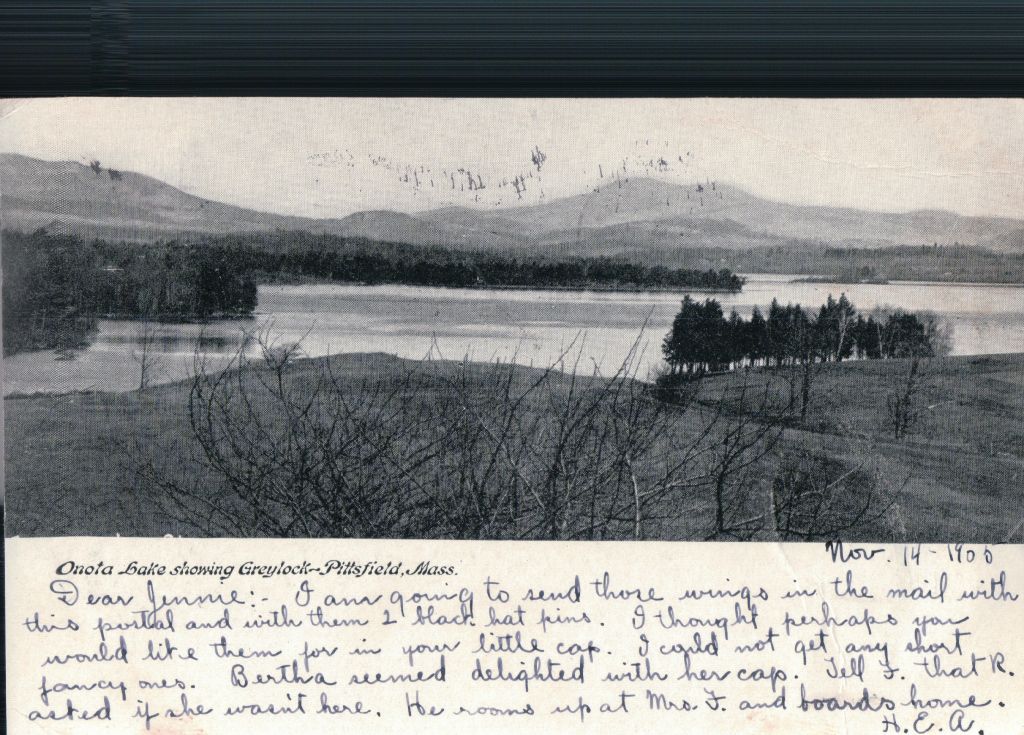 Nov. 14 - 1905
Onota Lake showing Greylock--Pittsfield, Mass.
Dear Jennie:- I am going to send those wings in the mail with
this postal and with them 2 black hat pins. I thought perhaps you
would like them for in your little cap. I could not get any short
fancy ones. Bertha seemed delighted with her cap. Tell F. that R.
asked if she wasn't here. He rooms up at Mrs. F. and boards home.
H. E. A.